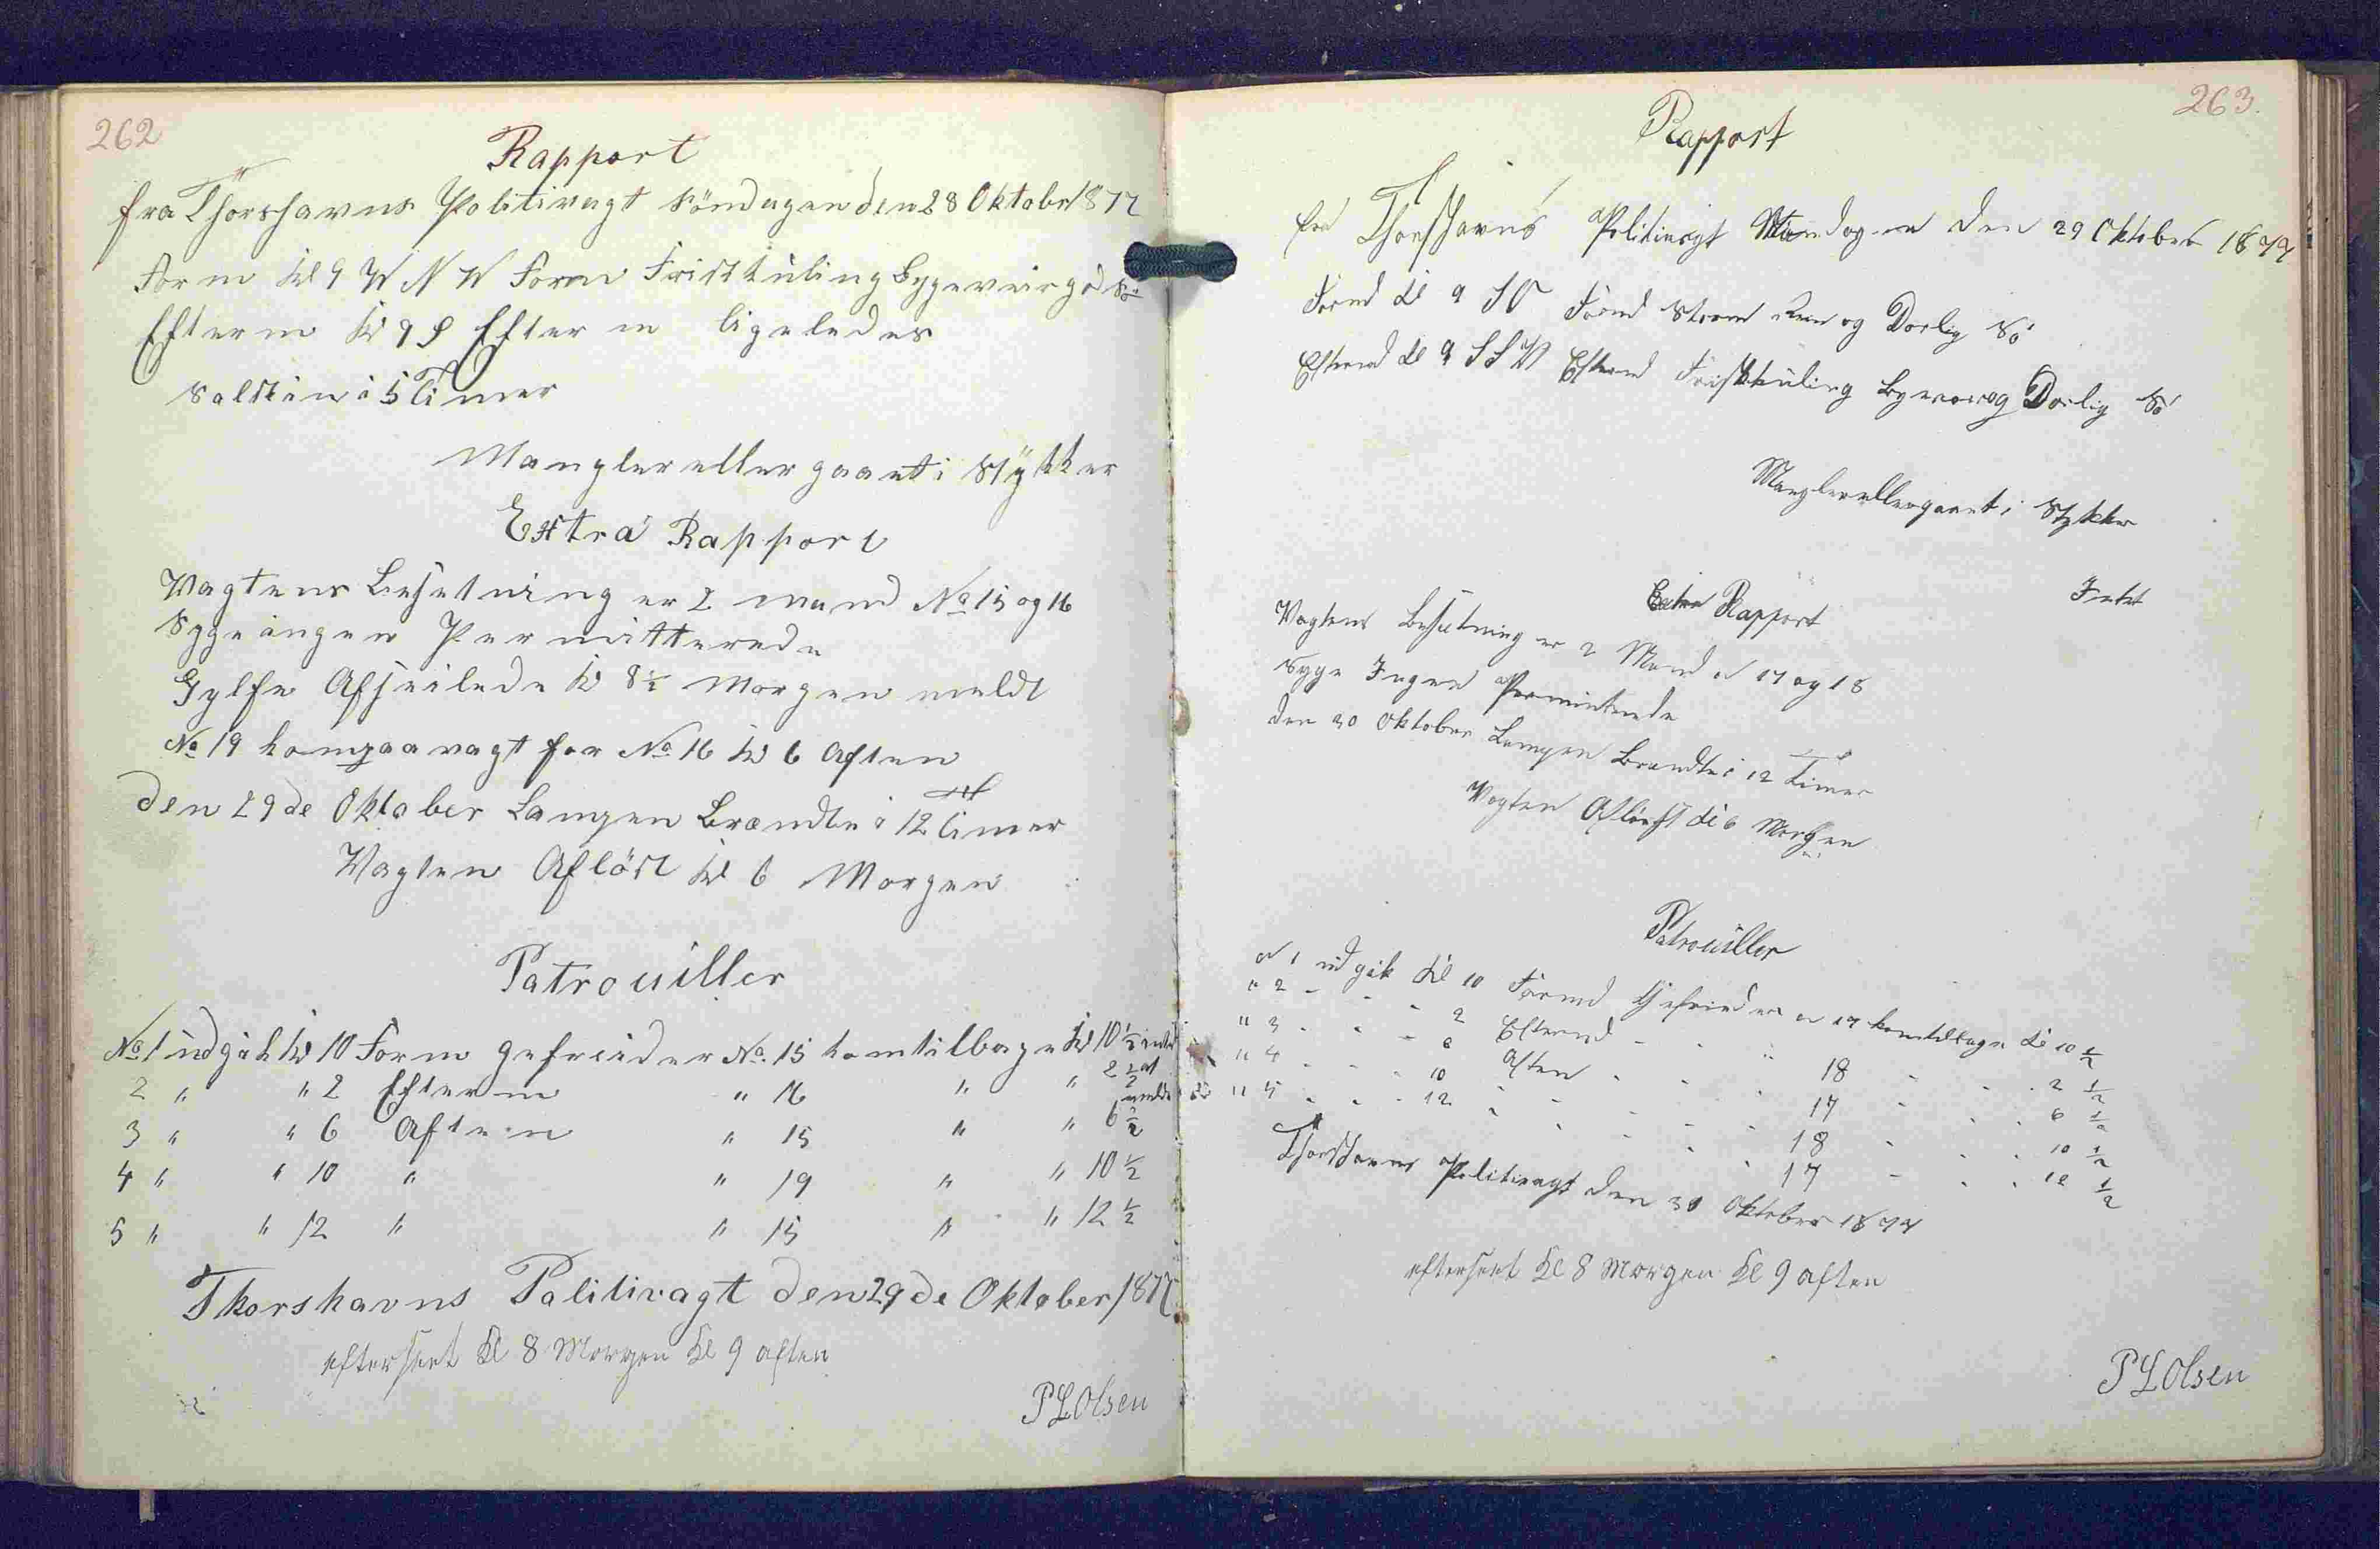 262
Rapport
fra Thorshavns Politivagt Söndagen den 28 Oktober 1877
Form Kl 9 W N W Form Frisk kuling Bygeveir god Sö
Efterm Kl 9 S Efterm ligeledes
i 5 Timer
Mangler eller gaaet i Stykker
Extra Rapport
Vagtens Besetning er 2 mand No 15 og 16
Syge ingen Permitterede
Gylfe Afseilede Kl 8½ Morgen meldt
No 19 kom paa vagt for No 16 Kl 6 Aften
den 29de Oktober Lampen Brændte i 12 Timer
Vagten Aflöst Kl 6 Morgen
Patrouiller
No 1 udgik Kl 10 Form gefreider No. 15 kom tilbage Kl 10½ intet
2 " " 2 Efterm " 16 " " 2½ at
melde
3 " " 6 Aften " 15 " " 6½
4 " " 10 " " 19 " " 10½
5 " " 12 " " 15 " " 12½
Thorshavns Politivagt den 29de Oktober 1877
efterseet Kl 8 Morgen Kl 9 aften
P L Olsen
263.
Rapport
fra Thorshavns Politivagt Mandagen den 29 Oktober 1877
Formd Kl 9 SO Formd Storm og Dorlig Sö
Eftermd Kl 9 SSW Eftermd Friskkuling og Dorlig Sö
Mangler eller gaaet i Stykker
Intet
Extra Rapport
Vagtens Besætning er 2 Mand No 17 og 18
Syge Ingen Permitterede
den 30 Oktober Lampen Brændte i 12 Timer
Vagten Aflöst Kl 6 Morgen
Patrouiller
No 1 udgik Kl 10 Formd Gefreider No 17 kom tilbage Kl 10½
" 2 - - - 2 Eftermd - - " 18 - - - 2½
" 3 - - - 6 Aften - - - 17 - - - 6½
" 4 - - - 10 - - - - 18 - - - 10½
" 5 - - - 12 - - - - 17 - - - 12½
Thorshavns Politivagt den 30 Oktober 1877
efterseet Kl 8 Morgen Kl 9 aften
P L Olsen